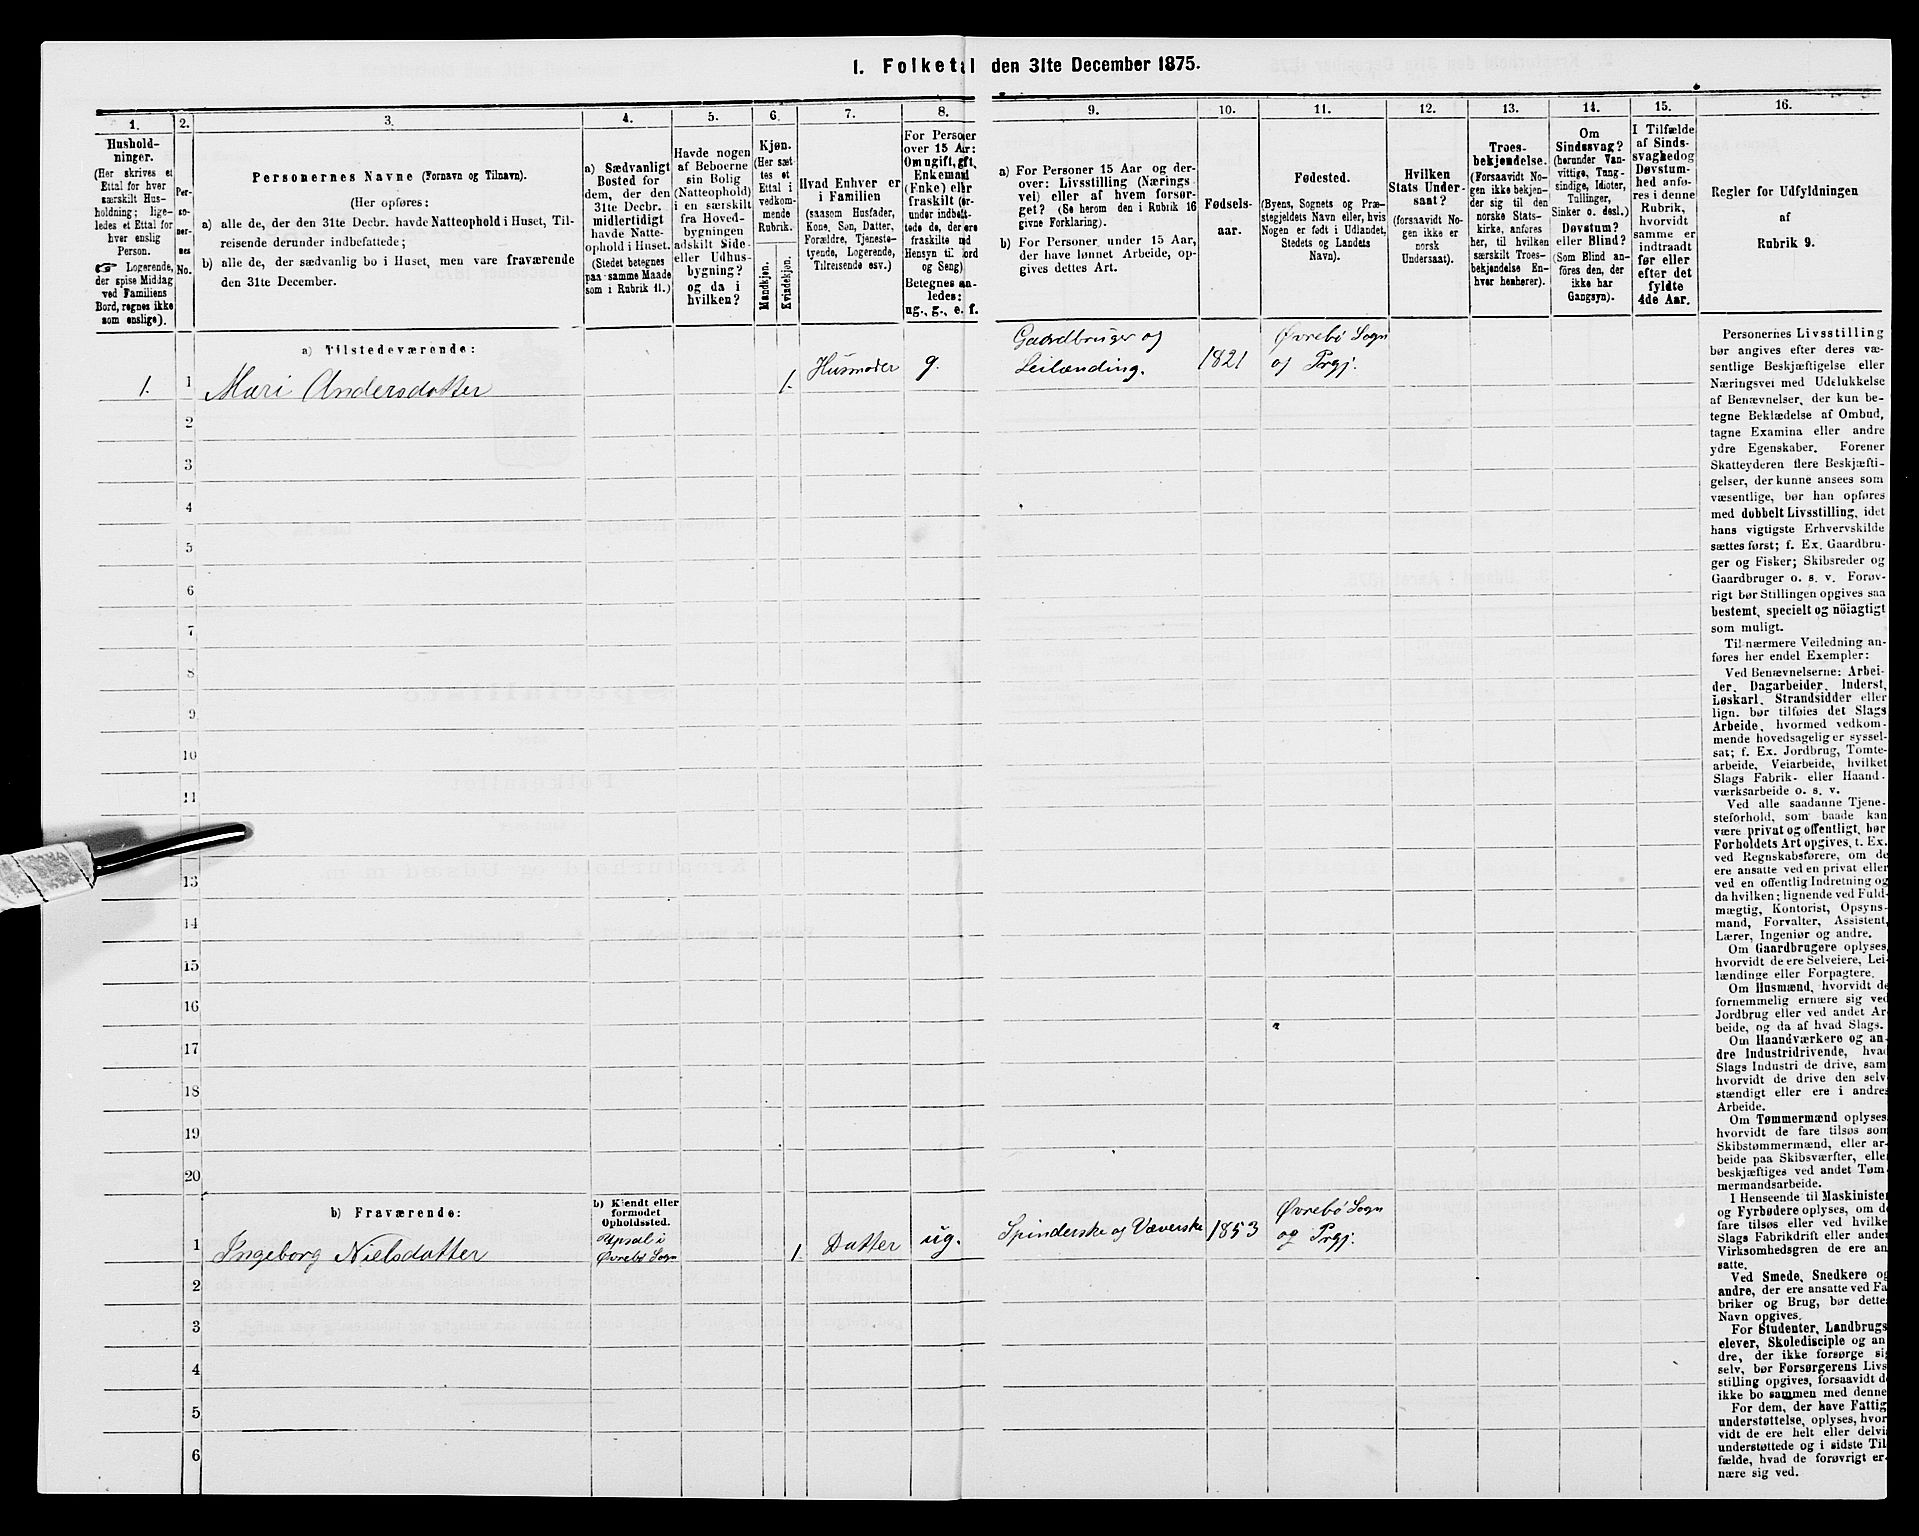 1. Folketal den 31te December 1875.
1.
Hushold-
ninger.
(Her skrives et
Ettal for hver
særskilt Hus-
holdning; lige-
ledes et Ettal for
hver enslig
Person.
☞ Logerende,
der spise Middag
ved Familiens
Bord, regnes ikke
som enslige).
2.
Per-
so-
ner-
nes
No.
3.
Personernes Navne (Fornavn og Tilnavn).
(Her opføres:
a) alle de, der den 31te Decbr. havde Natteophold i Huset, Til-
reisende derunder indbefattede;
b) alle de, der sædvanlig bo i Huset, men vare fraværende
den 31te December.
4.
a) Sædvanligt
Bosted for
dem, der den
31te Decbr.
midlertidigt
havde Natte-
ophold i Huset.
(Stedet betegnes
paa samme Maade
som i Rubrik 11.)
5.
Havde nogen
af Beboerne
sin Bolig
(Natteophold)
i en særskilt
fra Hoved-
bygningen
adskilt Side-
eller Udhus-
bygning?
og da i
hvilken?
6.
Kjøn.
(Her sæt-
tes et
Ettal i
vedkom-
mende
Rubrik.
Mandkjøn.
Kvindekjøn.
7.
Hvad Enhver er
i Familien
(saasom Husfader,
Kone, Søn, Datter,
Forældre, Tjeneste-
tyende, Logerende,
Tilreisende osv.)
8.
For Personer
over 15 Aar:
Om ugift, gift,
Enkemand
(Enke) eller
fraskilt
Hensyn til Bord
og Seng)
Betegnes
ledes:
ug., g., e. f.
9.
a) For Personer 15 Aar og der-
over: Livsstilling (Nærings-
vei) eller af hvem forsør-
get? (Se herom den i Rubrik 16
givne Forklaring).
b) For Personer under 15 Aar,
der have lønnet Arbeide, op-
gives dettes Art.
10.
Fødsels-
aar.
11.
Fødested.
(Byens, Sognets og Præ-
stegjeldets Navn eller, hvis
Nogen er født i Udlandet,
Stedets og Landets
Navn).
12.
Hvilken
Stats Under-
saat?
(forsaavidt No-
gen ikke er
norsk
Undersaat).
13.
Troes-
bekjendelse.
(Forsaavidt No-
gen ikke bekjen-
der sig til den
norske Stats-
kirke, anføres
her, til hvilken
særskilt Troes-
bekjendelse En-
hver henhører).
14.
Om
Sindssvag?
(herunder Van-
vittige, Tung-
sindige, Idioter,
Tullinger,
Sinker o. desl.)
Døvstum?
eller Blind?
(Som Blind an-
føres den, der
ikke har
Gangsyn).
15.
I Tilfælde
af Sinds-
svaghed og
Døvstum-
hed anfø-
res i denne
Rubrik,
hvorvidt
samme er
indtraadt
før eller
efter det
fyldte
4de Aar.
16.
Regler for Udfyldningen
af
Rubrik 9.
a) Tilstedeværende:
1. 1 Mari Andersdatter 1. Husmoder g. Gaardbruger og Leilænding. 1821 Øvrebö Sogn og Prgj.
2
3
4
5
6
7
8
9
10
11
13
14
15
16
17
18
19
20
b) Fraværende:
b) Kjendt eller
formodet
Opholdssted.
1 Ingeborg Nielsdatter Upsal i Øvrebö Sogn 1. Datter ug. Spinderske og Væverske 1853 Øvrebö Sogn og Prgj.
2
3
4
5
6
Personernes Livsstilling
bør angives efter deres væ-
sentlige Beskjæftigelse eller
Næringsvei med Udelukkelse
af Benævnelser, der kun be-
tegne Beklædelse af Ombud,
tagne Examina eller andre
ydre Egenskaber. Forener
Skatteyderen flere Beskjæfti-
gelser, der kunne ansees som
væsentlige, bør han opføres
med dobbelt Livsstilling, idet
hans vigtigste Erhvervskilde
sættes først; f. Ex. Gaardbru-
ger og Fisker; Skibsreder og
Gaardbruger o. s. v. Forøv-
rigt bør Stillingen opgives saa
bestemt, specielt og nöiagtigt
som muligt.
Til nærmere Veiledning an-
føres her endel Exempler:
Ved Benævnelserne: Arbei-
der, Dagarbeider, Inderst,
Løskarl, Strandsidder eller
lign. bør tilføies det Slags
Arbeide, hvormed vedkom-
mende hovedsagelig er syssel-
sat; f. Ex. Jordbrug, Tomte-
arbeide, Veiarbeide, hvilket
Slags Fabrik- eller Haand-
værksarbeide o. s. v.
Ved alle saadanne Tjene-
steforhold, som baade kan
være privat og offentligt, bør
Forholdets Art opgives, t. Ex.
ved Regnskabsførere, om de
ere ansatte ved en privat eller
ved en offentlig Indretning og
da hvilken; lignende ved Fuld-
mægtig, Kontorist, Opsyns-
mand, Forvalter, Assistent,
Lærer, Ingeniør og andre.
Om Gaardbrugere oplyses,
hvorvidt de ere Selveiere, Lei-
lændinge eller Forpagtere.
Om Husmænd, hvorvidt de
fornemmelig ernære sig ved
Jordbrug eller ved andet Ar-
beide, og da af hvad Slags.
Om Haandværkere og an-
dre Industridrivende, hvad
Slags Industri de drive, samt
hvorvidt de drive den selv-
stændigt eller ere i andres
Arbeide.
Om Tømmermænd oplyses,
hvorvidt de fare tilsøs som
Skibstømmermænd, eller ar-
beide paa Skibsværfter, eller
beskjæftiges ved andet Tøm-
mermandsarbeide.
I Henseende til Maskinister
og Fyrbødere oplyses, om de
fare tilsøs eller ved hvilket
Slags Fabrikdrift eller anden
Virksomhedsgren de ere an-
satte.
Ved Smede, Snedkere og
andre, der ere ansatte ved Fa-
briker og Brug, bør dettes
Navn opgives.
For Studenter, Landbrugs-
elever, Skoledisciple og an-
dre, der ikke forsørge sig
selv, bør Forsørgerens Livs-
stilling opgives, forsaavidt de
ikke bo sammen med denne.
For dem, der have Fattig-
understøttelse, oplyses, hvor-
vidt de ere helt eller delvis
understøttede og i sidste Til-
fælde, hvad de forøvrigt er-
nære sig ved.